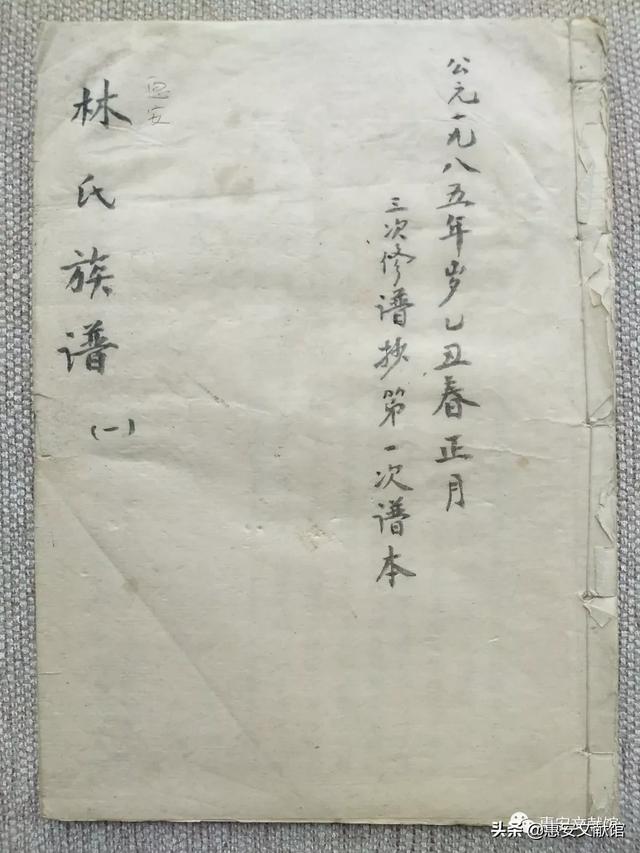 公元一九八五年岁乙丑春正月
三次修谱抄第一次谱本
林氏族谱
（一）
惠安文献馆
头条@惠安文献馆